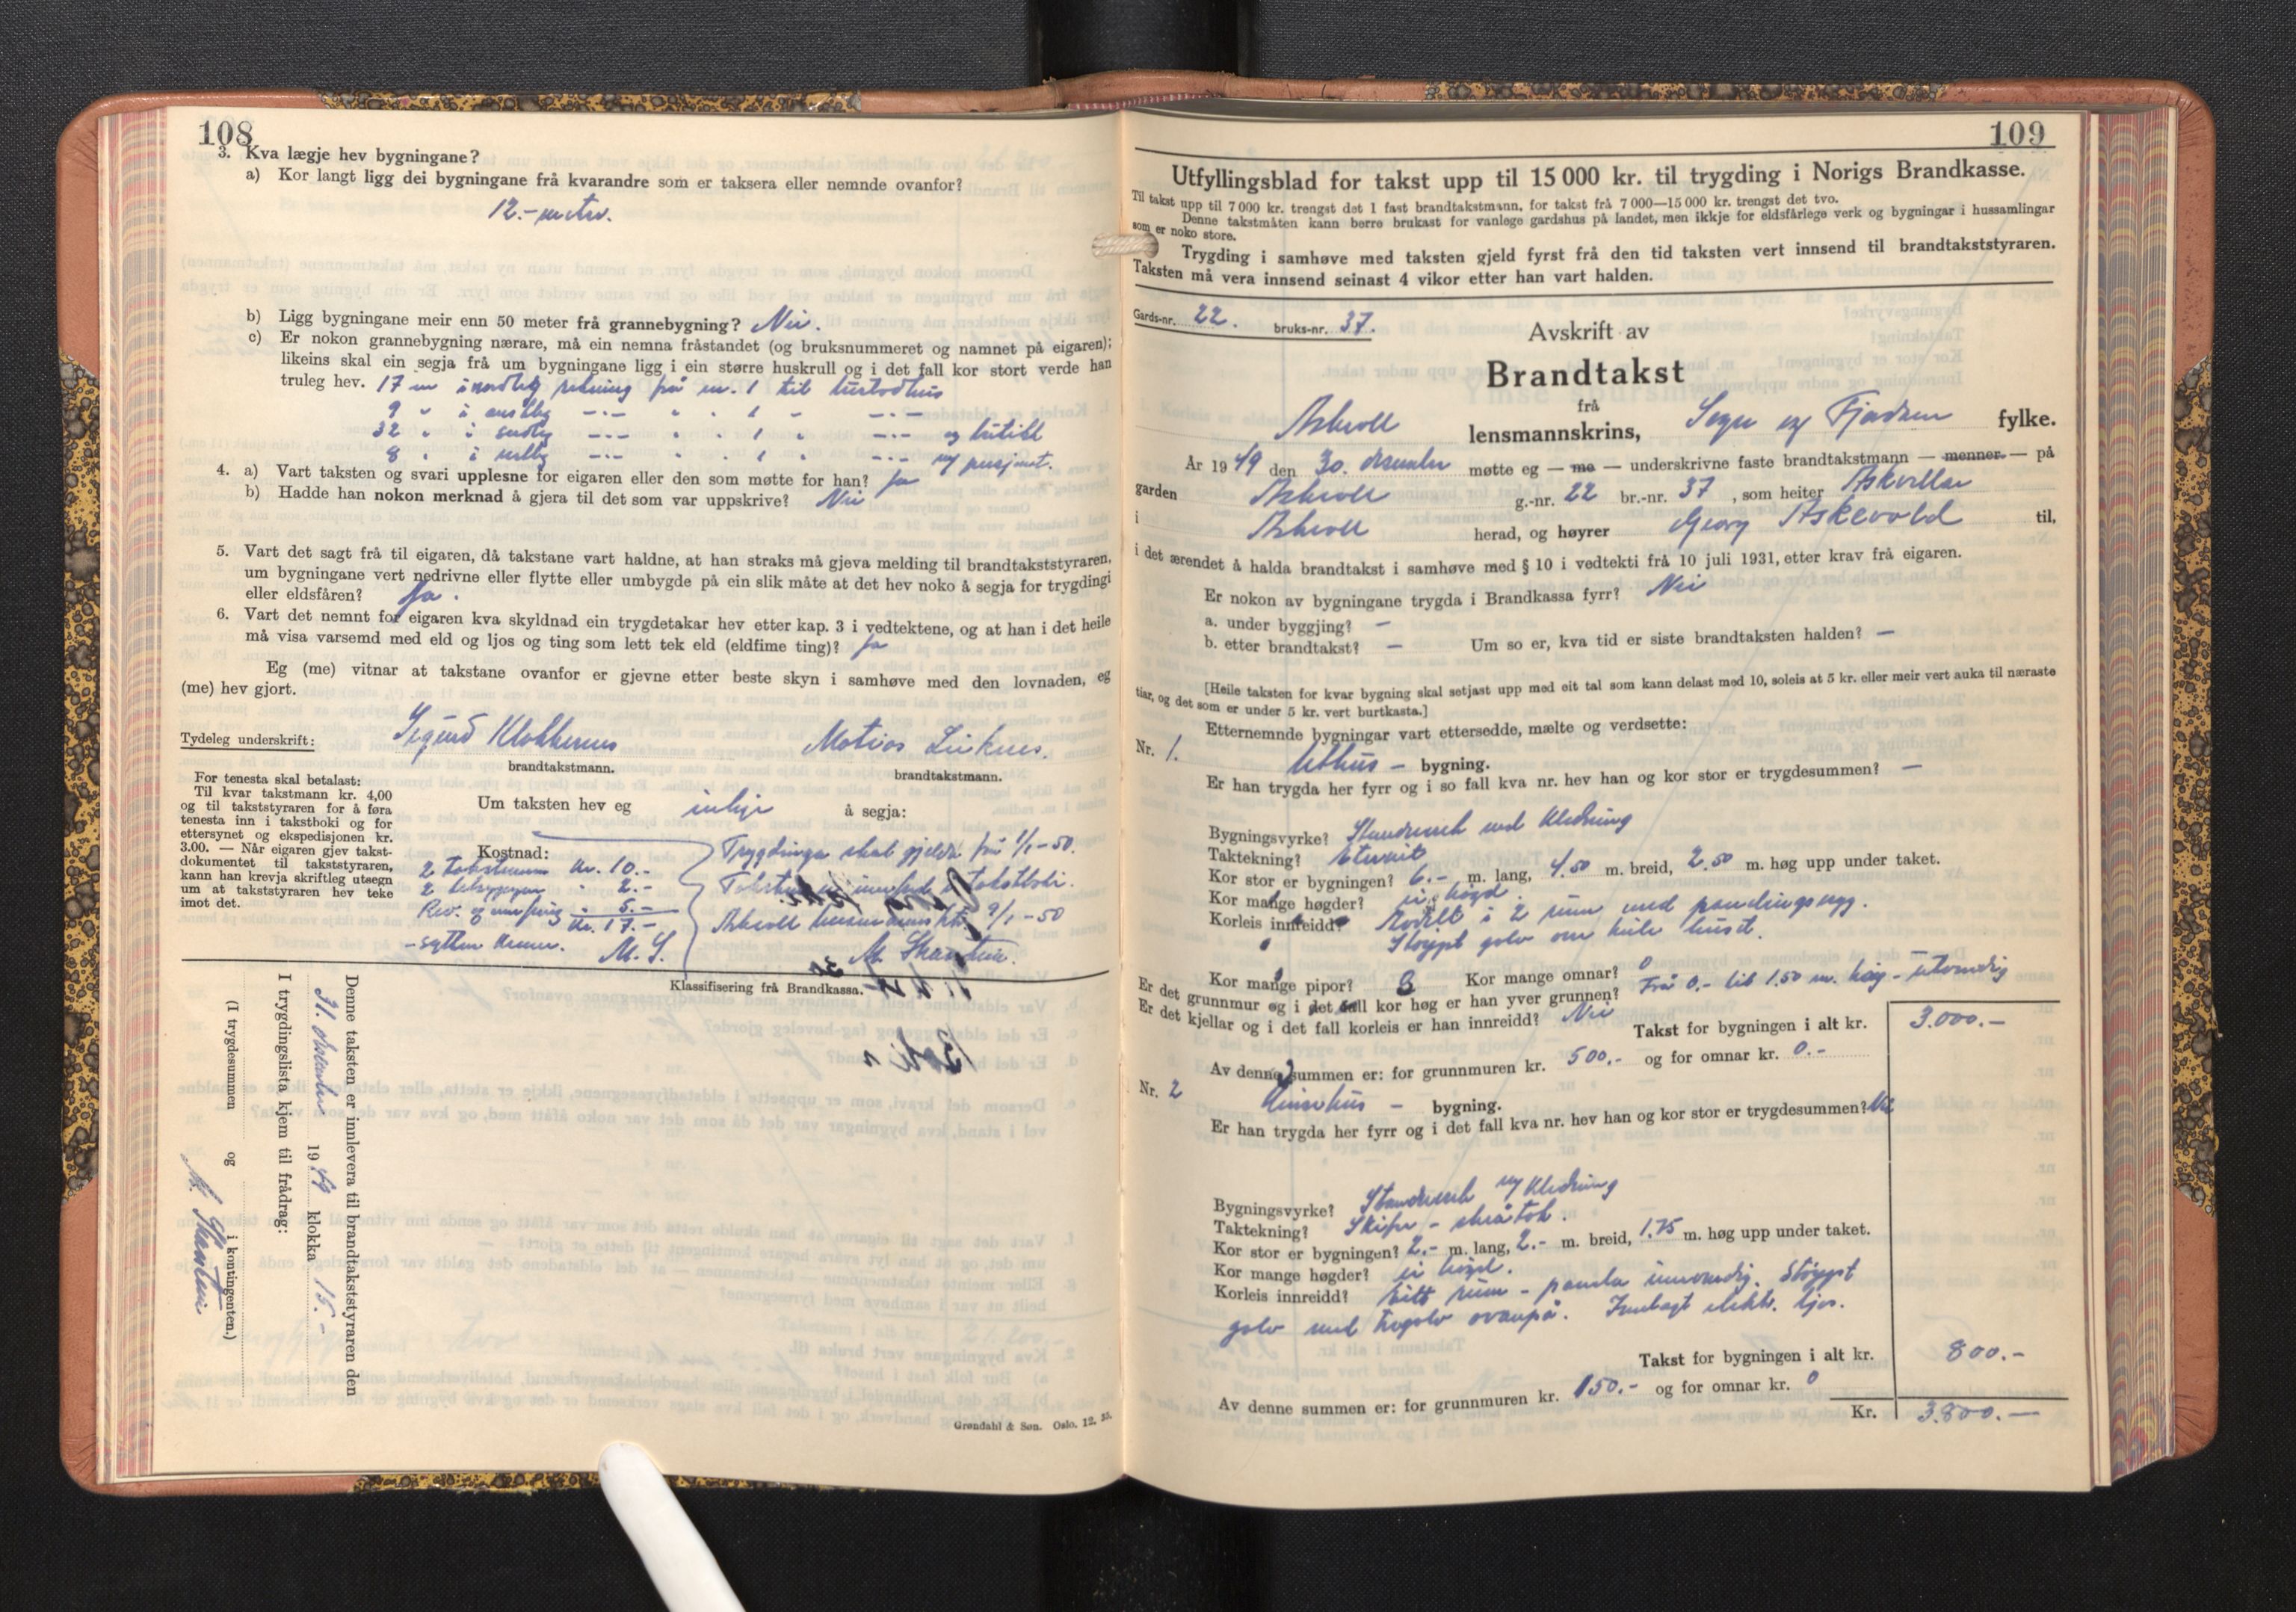 108
3. Kva lægje hev bygningane?
a) Kor langt ligg dei bygningane frå kvarandre som er taksera eller nemnde ovanfor?
12.- metr.
b) Ligg bygningane meir enn 50 meter frå grannebygning? Nei.
c) Er nokon grannebygning nærare, må ein nemna fråstandet (og bruksnummeret og namnet på eigaren);
likeins skal ein segja frå um bygningane ligg i ein større huskrull og i det fall kor stort verde han
truleg hev. 17 m i nordleg retning frå nr. 1 til
9 " i austleg -.- " " 1 " -.-
32 " i sudleg -.- " " 1 " -.- og butikk
8 " i vestleg -.- " " 1 " -.- og pensjonat.
4. a) Vart taksten og svari upplesne for eigaren eller den som møtte for han? Ja
b) Hadde han nokon merknad å gjera til det som var uppskrive? Nei
5. Vart det sagt frå til eigaren, då takstane vart haldne, at han straks må gjeva melding til brandtakststyraren,
um bygningane vert nedrivne eller flytte eller umbygde på ein slik måte at det hev noko å segja for trygdingi
eller eldsfåren? Ja.
6. Vart det nemnt for eigaren kva skyldnad ein trygdetakar hev etter kap. 3 i vedtektene, og at han i det heile
må visa varsemd med eld og ljos og ting som lett tek eld (eldfime ting)? Ja
Eg (me) vitnar at takstane ovanfor er gjevne etter beste skyn i samhøve med den lovnaden, eg
(me) hev gjort.
Tydeleg underskrift: Sigurd Klokkernes Matias
brandtakstmann. brandtakstmann.
For tenesta skal betalast:
Til kvar takstmann kr. 4,00
og til takststyraren for å føra
tenesta inn i takstboki og for
ettersynet og ekspedisjonen kr.
3.00. — Når eigaren gjev takst-
dokumentet til takststyraren,
kann han krevja skriftleg utsegn
um at takststyraren hev teke
imot det.
Um taksten hev eg inkje å segja:
Kostnad:
2 takstmenn kr. 10.-
2 " 2.-
Rev. og innføring " 5.-
Kr. 17.-
- sytten kroner. M. S.
Trygdinga skal gjelda frå 1/1-50.
Taksten er innførd i takstboki.
Askvoll lensmannsktr. 9/1-50
M. Skarstein.
Klassifisering frå Brandkassa.
Denne taksten er innlevera til brandtakststyraren den
31. desember 1949 klokka 15.-
I trygdingslista kjem til frådrag:
(I trygdesummen og i kontingenten.)
M. Skarstein
Grøndahl & Søn. Oslo. 12. 35.
109
Utfyllingsblad for takst upp til 15 000 kr. til trygding i Norigs Brandkasse.
Til takst upp til 7 000 kr. trengst det 1 fast brandtakstmann, for takst frå 7 000—15 000 kr. trengst det tvo.
Denne takstmåten kann berre brukast for vanlege gardshus på landet, men ikkje for eldsfårlege verk og bygningar i hussamlingar
som er noko store.
Trygding i samhøve med taksten gjeld fyrst frå den tid taksten vert innsend til brandtakststyraren.
Taksten må vera innsend seinast 4 vikor etter han vart halden.
Gards-nr. 22. bruks-nr. 37.
Avskrift av
Brandtakst
frå
Askvoll lensmannskrins, Sogn og Fjordane fylke.
År 1949 den 30. desember møtte eg — me — underskrivne faste brandtakstmann — menner — på
garden Askvoll g.-nr. 22 br.-nr. 37, som heiter Askvollar
i Askvoll herad, og høyrer Georg Askevold til,
i det ærendet å halda brandtakst i samhøve med § 10 i vedtekti frå 10 juli 1931, etter krav frå eigaren.
Er nokon av bygningane trygda i Brandkassa fyrr? Nei
a. under byggjing? —
b. etter brandtakst? — Um so er, kva tid er siste brandtaksten halden? —
[Heile taksten for kvar bygning skal setjast upp med eit tal som kann delast med 10, soleis at 5 kr. eller meir vert auka til næraste
tiar, og det som er under 5 kr. vert burtkasta.]
Etternemnde bygningar vart ettersedde, mælte og verdsette:
Nr. 1. Uthus - bygning.
Er han trygda her fyrr og i so fall kva nr. hev han og kor stor er trygdesummen? —
Bygningsvyrke? Standverk med kledning
Taktekning? Eternit
Kor stor er bygningen? 6.- m. lang, 4.50 m. breid, 2.50 m. høg upp under taket.
Kor mange høgder? ei høgd.
Korleis innreidd? Avdelt i 2 rum med panelingsvegg.
Støypt golv om heile huset.
Kor mange pipor? Kor mange omnar? 0
Er det grunnmur og i det fall kor høg er han yver grunnen? Frå 0.- til 1.50 m. høg - utvendig
Er det kjellar og i det fall korleis er han innreidd? Nei
Takst for bygningen i alt kr. 3.000.-
Av denne summen er: for grunnmuren kr. 500.- og for omnar kr. 0.-
Nr. 2 - bygning.
Er han trygda her fyrr og i det fall kva nr. hev han og kor stor er trygdesummen? Nei
Bygningsvyrke? Standverk og kledning
Taktekning? Skifer - skråtak.
Kor stor er bygningen? 2.- m. lang, 2.- m. breid, 1.75 m. høg upp under taket.
Kor mange høgder? ei høgd.
Korleis innreidd? Eitt rum - panela innvendig. Støypt
golv med tregolv ovanpå. Innlagt elektr. ljos.
Takst for bygningen i alt kr. 800.-
Av denne summen er: for grunnmuren kr. 150.- og for omnar kr. 0
Kr. 3.800.-